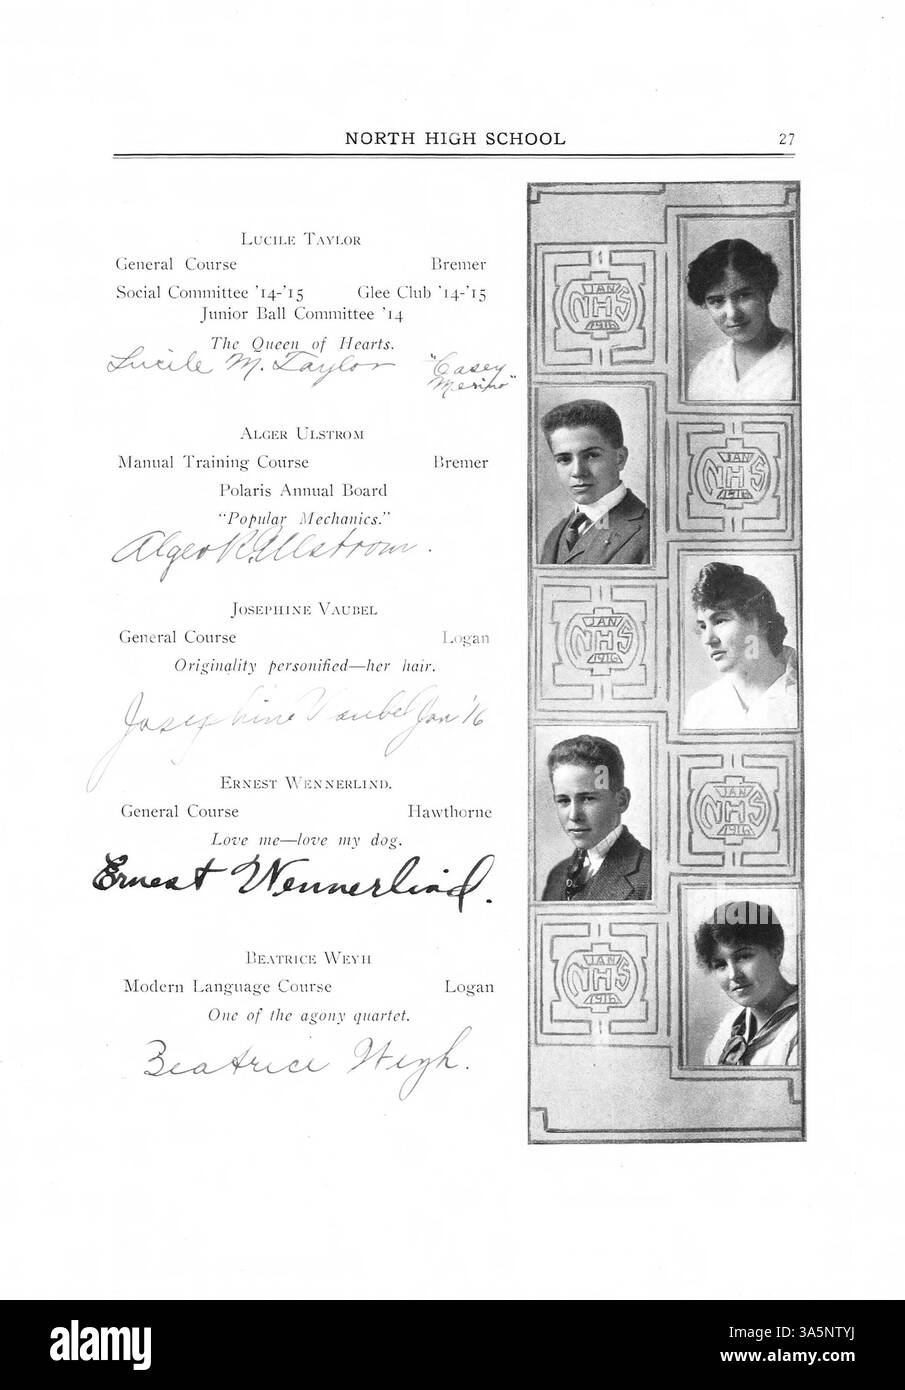 NORTH HIGH SCHOOL 27
LUCILE TAYLOR
General Course Bremer
Social Committee '14-'15 Glee Club '14-'15
Junior Ball Committee '14
The Queen of Hearts.
Lucile M. Taylor "Casey
Merino"
ALGER ULSTROM
Manual Training Course Bremer
Polaris Annual Board
"Popular Mechanics."
Alger R. Ulstrom.
JOSEPHINE VAUBEL
General Course Logan
Originality personified—her hair.
Josephine Vaubel Jan '16
ERNEST WENNERLIND.
General Course Hawthorne
Love me—love my dog.
Ernest Wennerlind.
BEATRICE WEYH
Modern Language Course Logan
One of the agony quartet.
Beatrice Weyh.
JAN
NHS
1916
JAN
NHS
1916
JAN
NHS
1916
JAN
NHS
1916
JAN
NHS
1916
a
a
a
a
alamy
Image ID: 3A5NTYJ
www.alamy.com